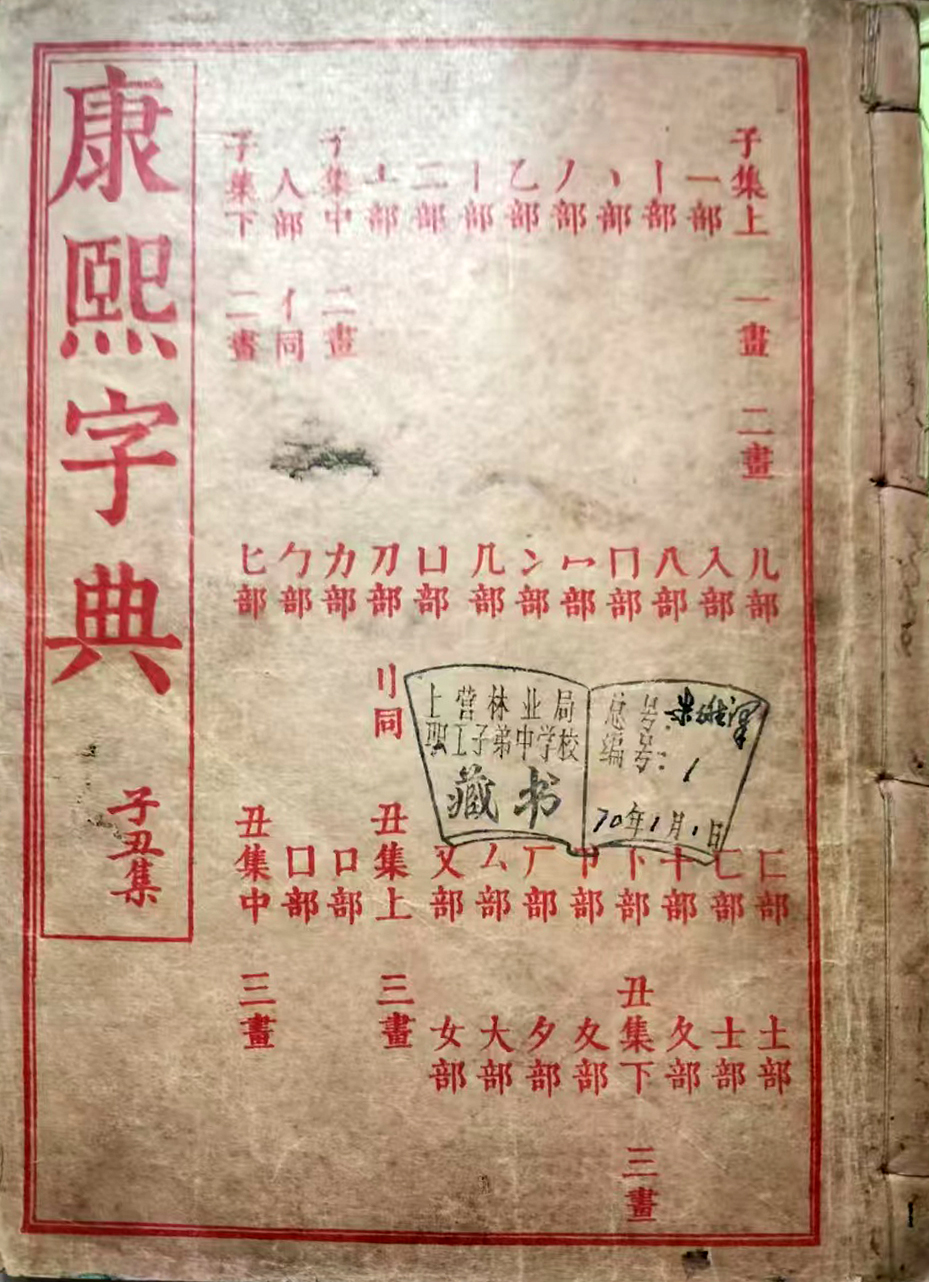 康熙字典
子丑集
子集上 一畫 二畫
一部
丨部
丶部
丿部
乙部
亅部
二部
亠部
子集中 二畫
人部 亻同
子集下 二畫
儿部
入部
八部
冂部
冖部
冫部
几部
凵部
刀部 刂同
力部
勹部
匕部
匚部
匸部
十部
卜部
卩部
厂部
厶部
又部
丑集上 三畫
口部
囗部
丑集中 三畫
土部
士部
夂部
丑集下 三畫
夊部
夕部
大部
女部
上营林业局
职工子弟中学校
藏书
总号:
编号: 1
70年1月1日